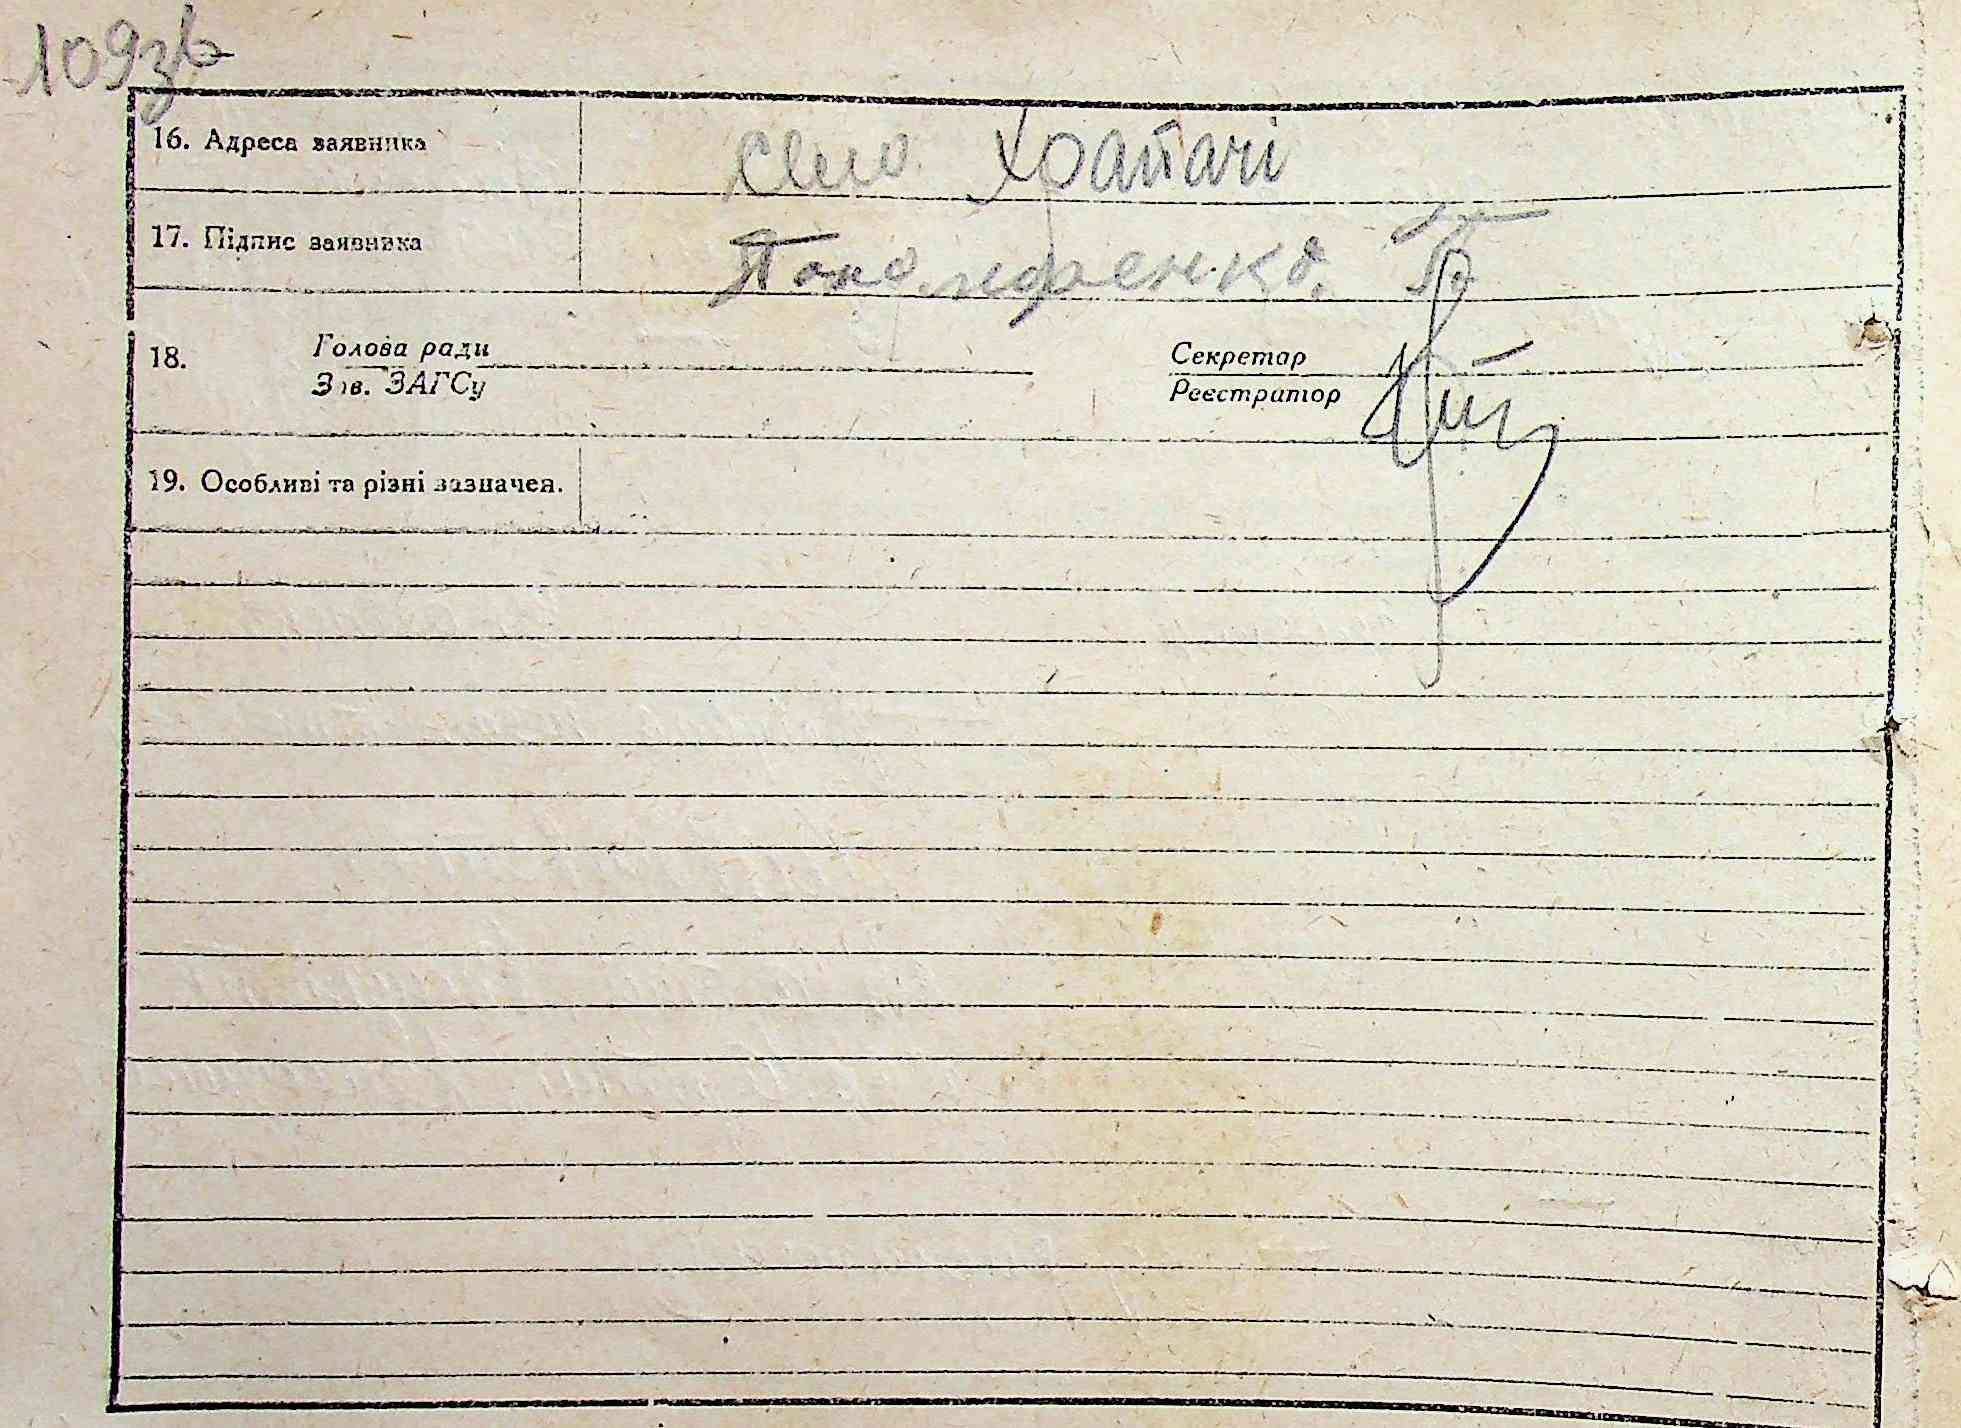 109зв
16. Адреса заявника село Храпачі
17. Підпис заявника
18. Голова ради Секретар
Зав. ЗАГСу Реєстратор
19. Особливі та різні зазначен.